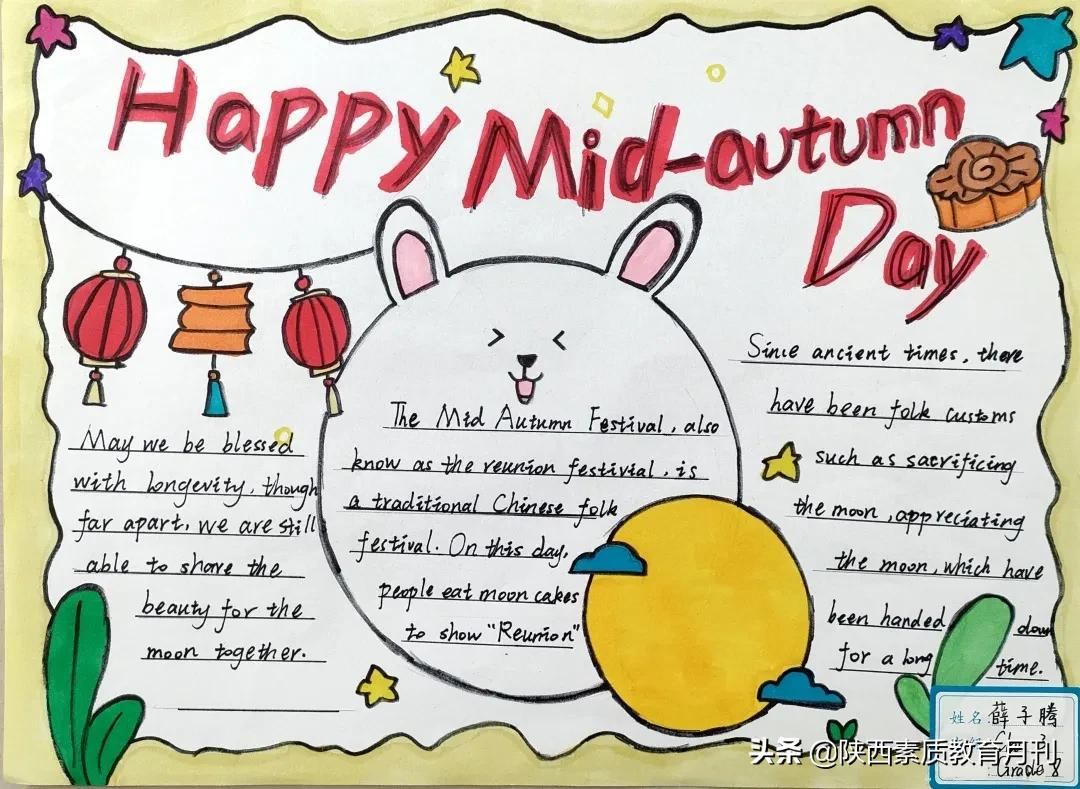 Happy Mid-autumn
Day
May we be blessed
with longevity, though
far apart, we are still
able to share the
beauty for the
moon together.
The Mid Autumn Festival, also
know as the reunion festivial, is
a traditional Chinese folk
festival. On this day,
people eat moon cakes
to show "Reunion"
Since ancient times, there
have been folk customs
such as sacrificing
the moon, appreciating
the moon, which have
been handed down
for a long time.
姓名: 薛子腾
3
Grade 8
头条 @陕西素质教育月刊